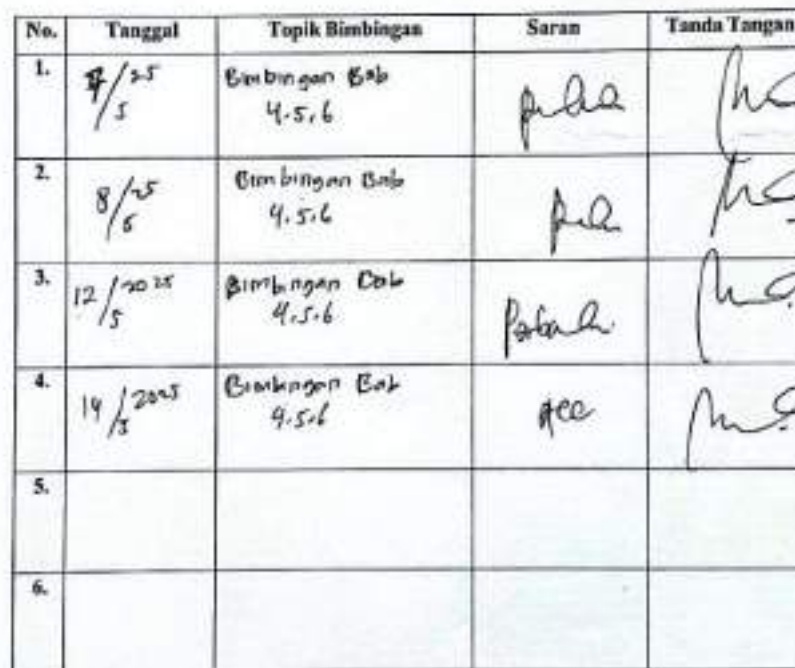 No. Tanggal Topik Bimbingan Saran Tanda Tangan
1. 7/5 25 Bimbingan Bab
4.5.6
2. 8/5 25 Bimbingan Bab
4.5.6
3. 12/5 2025 Bimbingan Bab
4.5.6
4. 14/5 2025 Bimbingan Bab acc
4.5.6
5.
6.